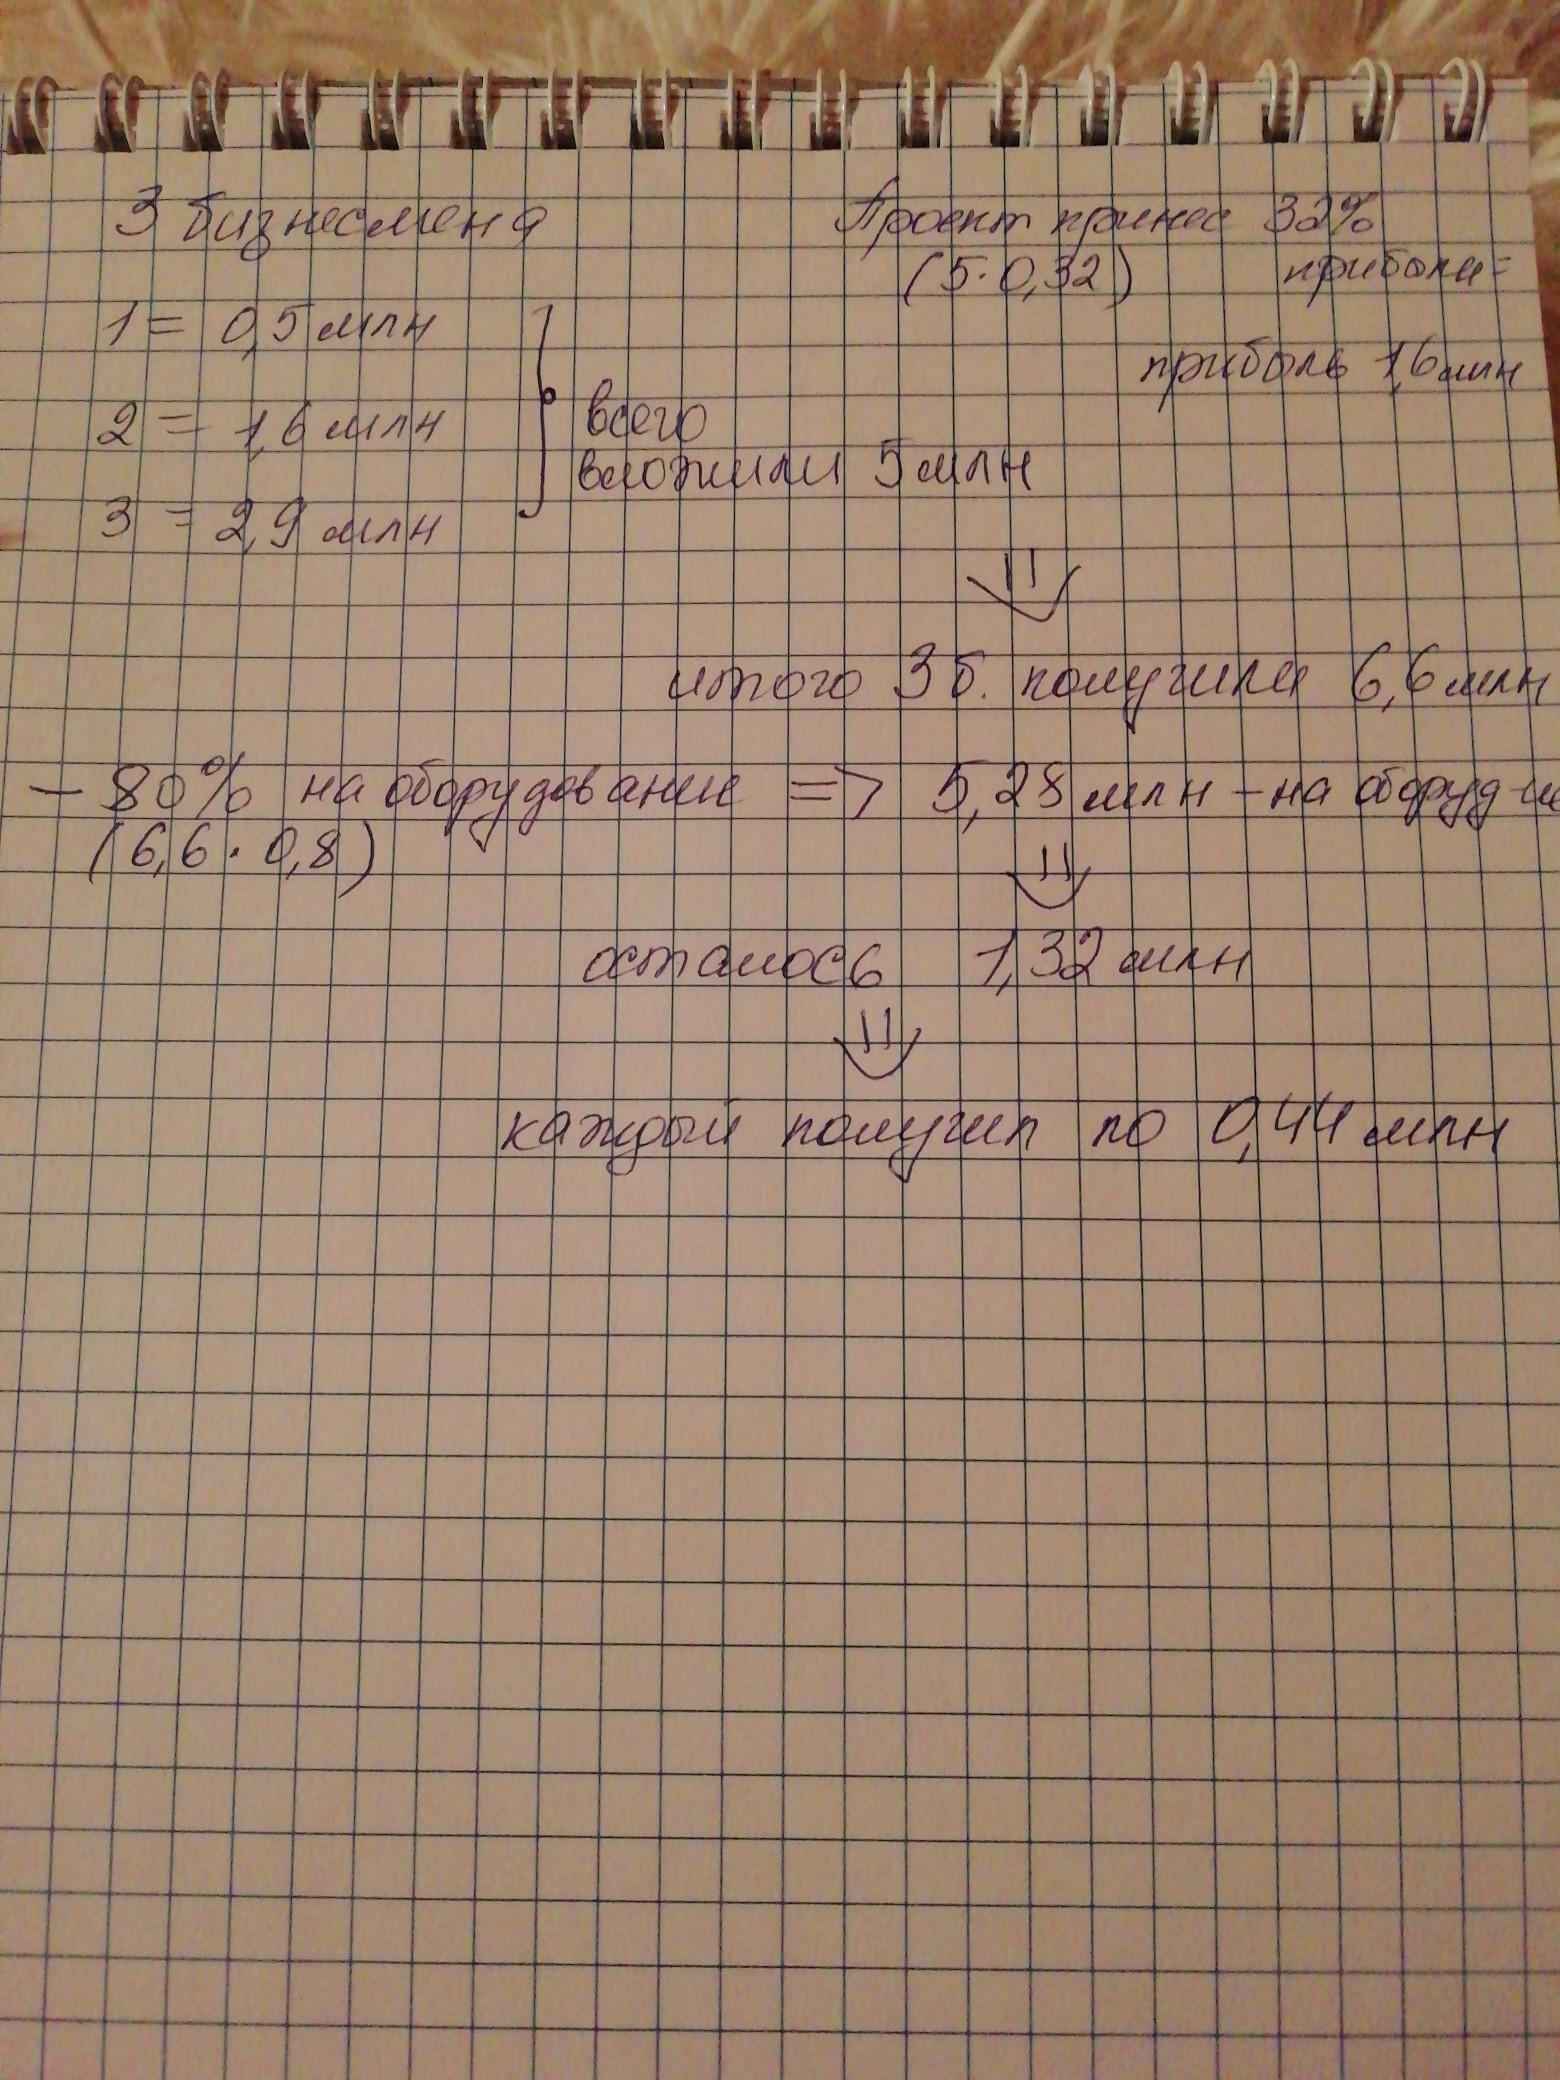 3 бизнесмена
Проект принес 32%
(5·0,32) прибыли=
1 = 0,5 млн
прибыль 1,6 млн
2 = 1,6 млн
всего
вложили 5 млн
3 = 2,9 млн
итого 3 б. получили 6,6 млн
- 80% на оборудование => 5,28 млн - на оборуд-е
(6,6 · 0,8)
осталось 1,32 млн
каждый получил по 0,44 млн